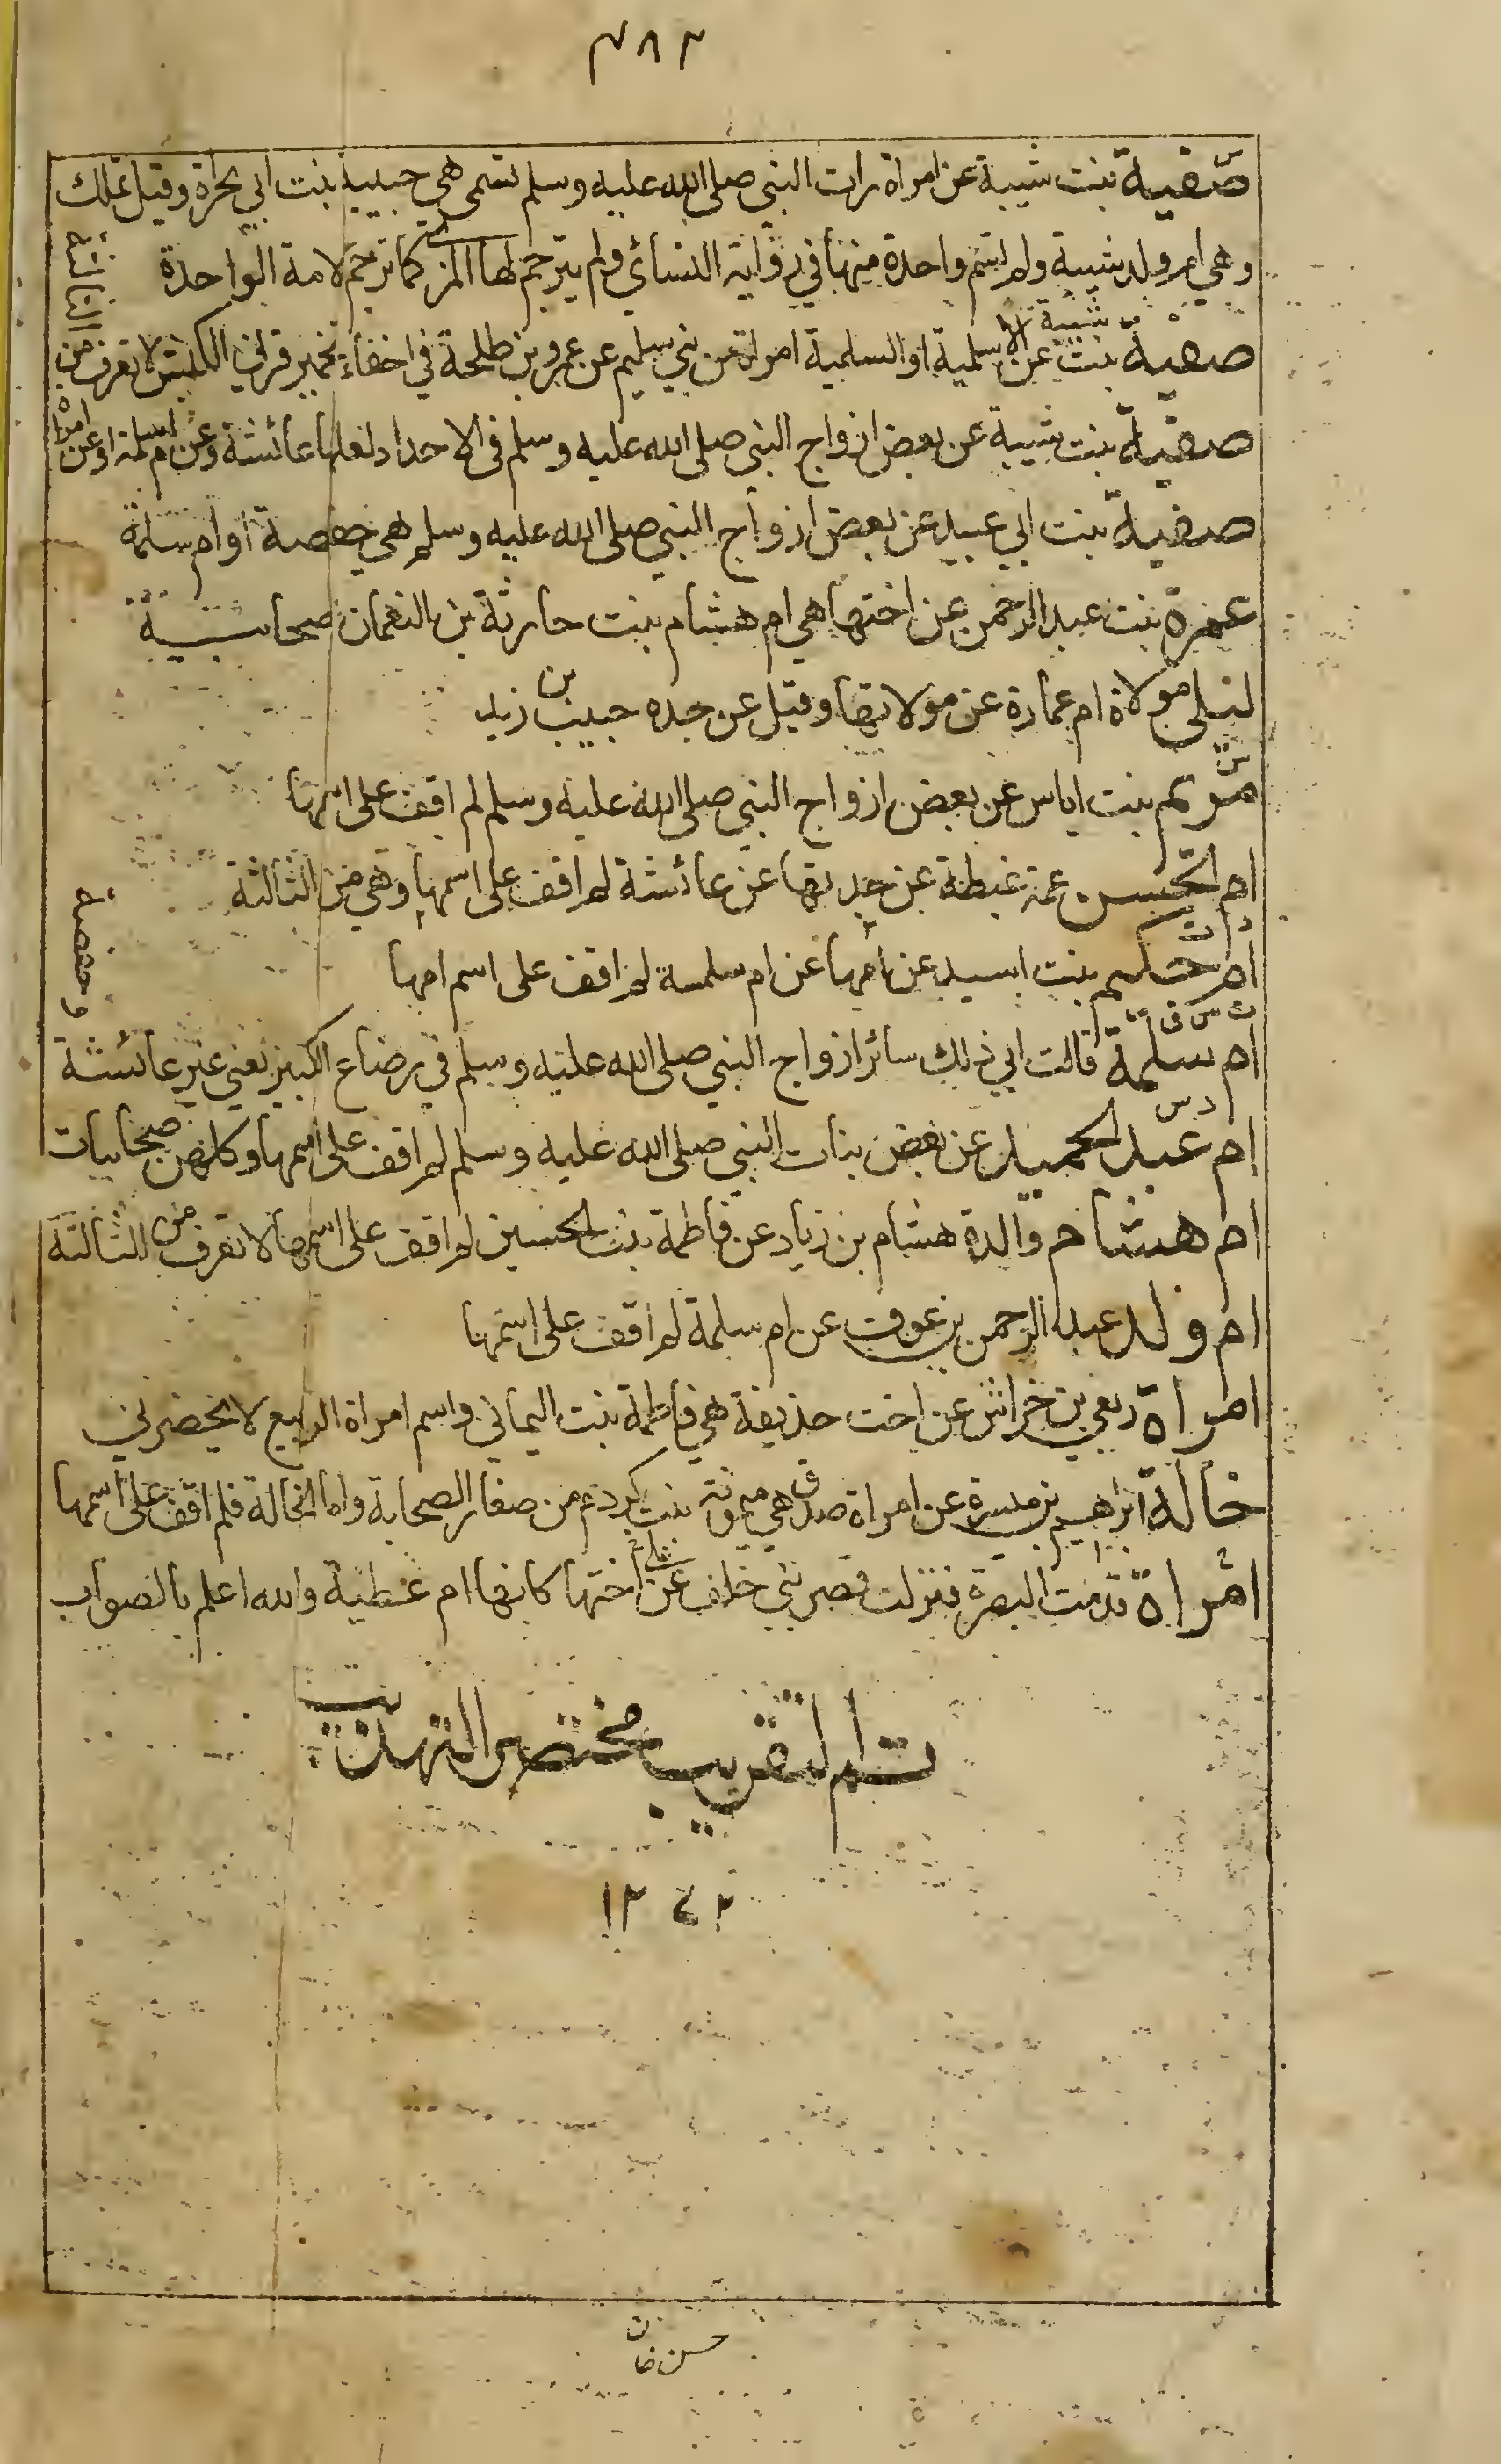 ٣٨٢
صفية بنت شيبة عن امراة رات النبى صلى الله عليه وسلم تسمى هى حبيبة بنت ابى تجراة وقيل تملك
وهي ام ولد شيبة ولم تسم واحدة منهما في رواية النسائي ولم يترجم لها المزى كما ترجم لامة الواحدة
صفية بنت شيبة عن الاسلمية او السلمية امراة من بني سليم عن عمرو بن طلحة في اخفاء تخمير قرني الكبش لا تعرف من
الثالثة
صفية بنت شيبة عن بعض ازواج النبى صلى الله عليه وسلم فى الاحداد لعلها عائشة وعن ام سلمة او عن امراة
صفية بنت ابي عبيد عن بعض ازواج النبى صلى الله عليه وسلم هي حفصة او ام سلمة
عمرة بنت عبد الرحمن عن اختها هي ام هشام بنت حارثة بن النعمان صحابية
ليلى مولاة ام عمارة عن مولاتها وقيل عن جده حبيب بن زيد
س
مريم بنت اياس عن بعض ازواج النبى صلى الله عليه وسلم لم اقف على اسمها
ام الحسن عمة غبطة عن جدتها عن عائشة لم اقف على اسمها وهي من الثالثة
وحفصة
ام حكيم بنت اسيد عن امها عن ام سلمة لم اقف على اسم امها
ام سلمة قالت ابي ذلك سائر ازواج النبى صلى الله عليه وسلم في رضاع الكبير يعني غير عائشة
د س
ام عبد الحميد عن بعض بنات النبى صلى الله عليه وسلم لم اقف على اسمها وكلهن صحابيات
ام هشام والدة هشام بن زياد عن فاطمة بنت الحسين لم اقف على اسمها لا تعرف من الثالثة
ام ولد عبد الرحمن بن عوف عن ام سلمة لم اقف على اسمها
امراة ربعي بن خراش عن اخت حذيفة هي فاطمة بنت اليماني واسم امراة الربيع لا يحضرني
خالة ابراهيم بن ميسرة عن امراة صدق هي ميمونة بنت كردم من صغار الصحابة واما الخالة فلم اقف على اسمها
امراة قدمت البصرة فنزلت قصر بني خلف عن اختها كانها ام عطية والله اعلم بالصواب
تم التقريب مختصر التهذيب
١٢٧٢
حسن خان